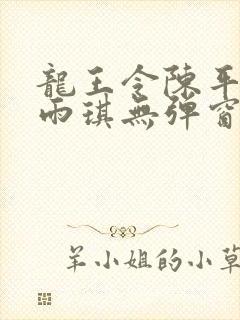 龍王令陳平
雨琪無彈窗
羊小姐的小草